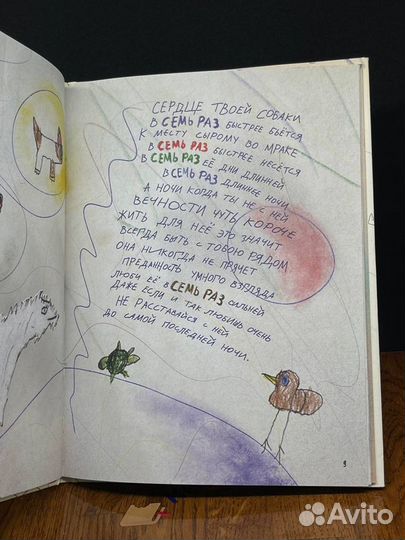 СЕРДЦЕ ТВОЕЙ СОБАКИ
В СЕМЬ РАЗ БЫСТРЕЕ БЬЁТСЯ
К МЕСТУ СЫРОМУ ВО МРАКЕ
В СЕМЬ РАЗ БЫСТРЕЕ НЕСЁТСЯ
В СЕМЬ РАЗ ЕЁ ДНИ ДЛИННЕЙ
В СЕМЬ РАЗ ДЛИННЕЕ НОЧИ
А НОЧИ КОГДА ТЫ НЕ С НЕЙ
ВЕЧНОСТИ ЧУТЬ КОРОЧЕ
ЖИТЬ ДЛЯ НЕЁ ЭТО ЗНАЧИТ
ВСЕГДА БЫТЬ С ТОБОЮ РЯДОМ
ОНА НИКОГДА НЕ ПРЯЧЕТ
ПРЕДАННОСТЬ УМНОГО ВЗГЛЯДА
ЛЮБИ ЕЁ В СЕМЬ РАЗ СИЛЬНЕЙ
ДАЖЕ ЕСЛИ И ТАК ЛЮБИШЬ ОЧЕНЬ
НЕ РАССТАВАЙСЯ С НЕЙ
ДО САМОЙ ПОСЛЕДНЕЙ НОЧИ.
9
Avito